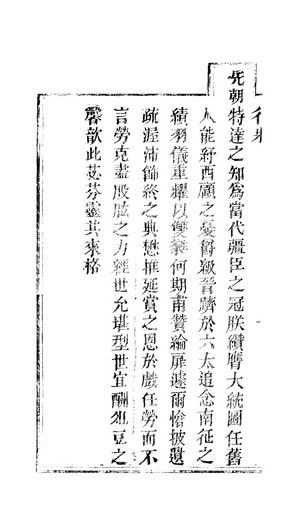 先朝特達之知為當代疆臣之冠朕纘膺大統圖任舊
人能紓西顧之憂爵級晉躋於六太追念南征之
績羽儀重耀以雙豸何期甫贊綸扉遽爾愴披遺
疏渥沛飾終之典懋推延賞之恩於戲任勞而不
言勞克盡股肱之力經世允堪型世宜酬俎豆之
馨歆此苾芬靈其來格